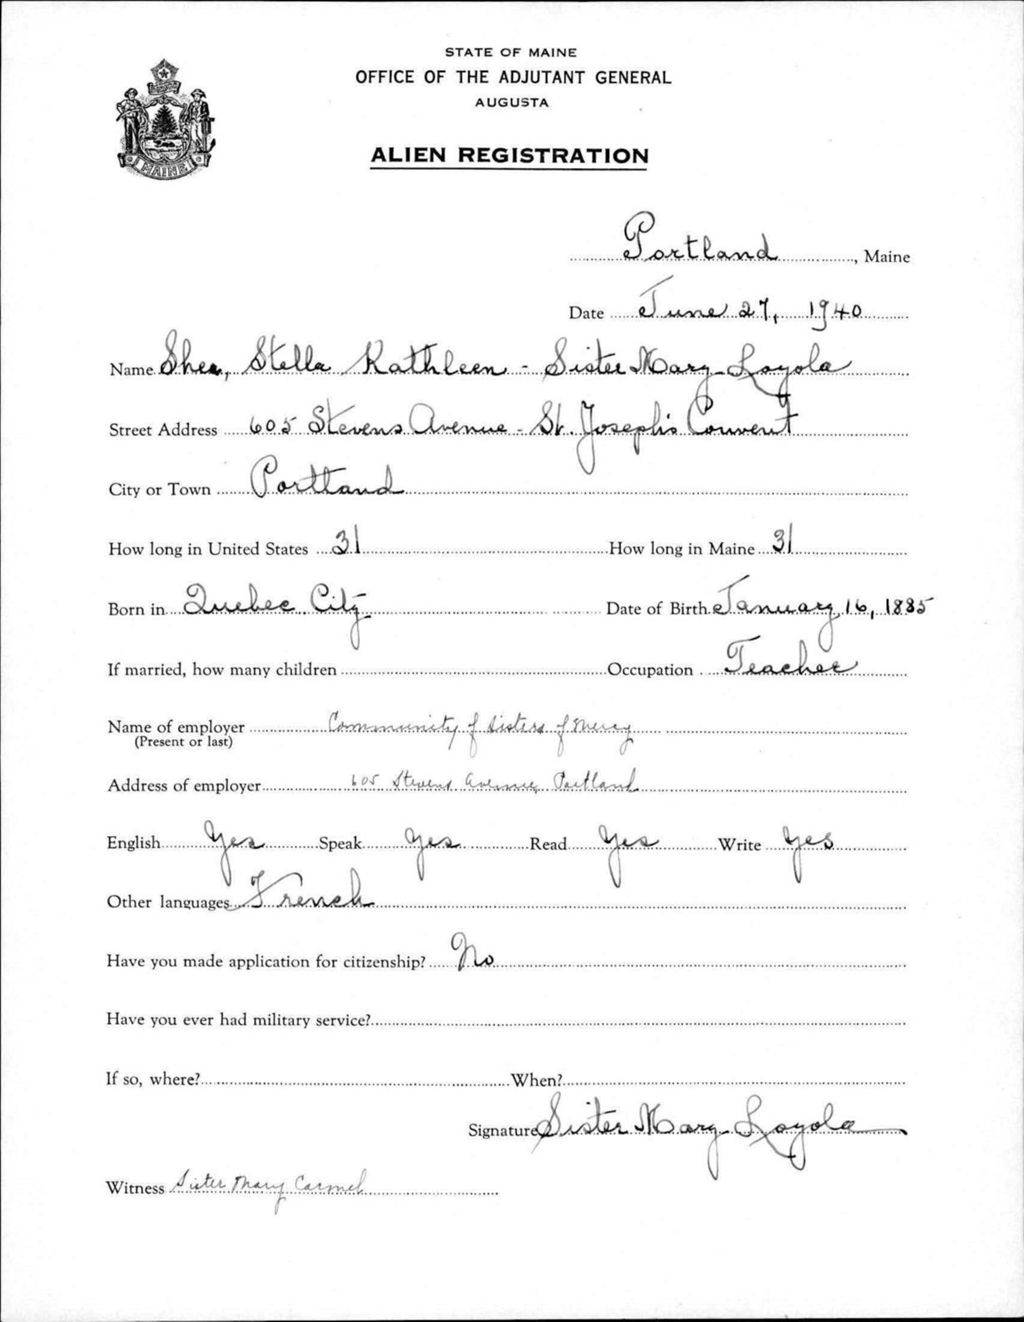 STATE OF MAINE
OFFICE OF THE ADJUTANT GENERAL
AUGUSTA
ALIEN REGISTRATION
MAINE
Portland, Maine
Date June 27, 1940
Name Shea, Stella Kathleen - Sister Mary Loyola
Street Address 605 Stevens Avenue - St. Joseph's Convent
City or Town Portland
How long in United States 31 How long in Maine 31
Born in Quebec City Date of Birth January 16, 1885
If married, how many children Occupation Teacher
Name of employer Community of Sisters of Mercy
(Present or last)
Address of employer 605 Stevens Avenue Portland
English Yes Speak Yes Read Yes Write Yes
Other languages French
Have you made application for citizenship? No
Have you ever had military service?
If so, where? When?
Signature Sister Mary Loyola
Witness Sister Mary Carmel